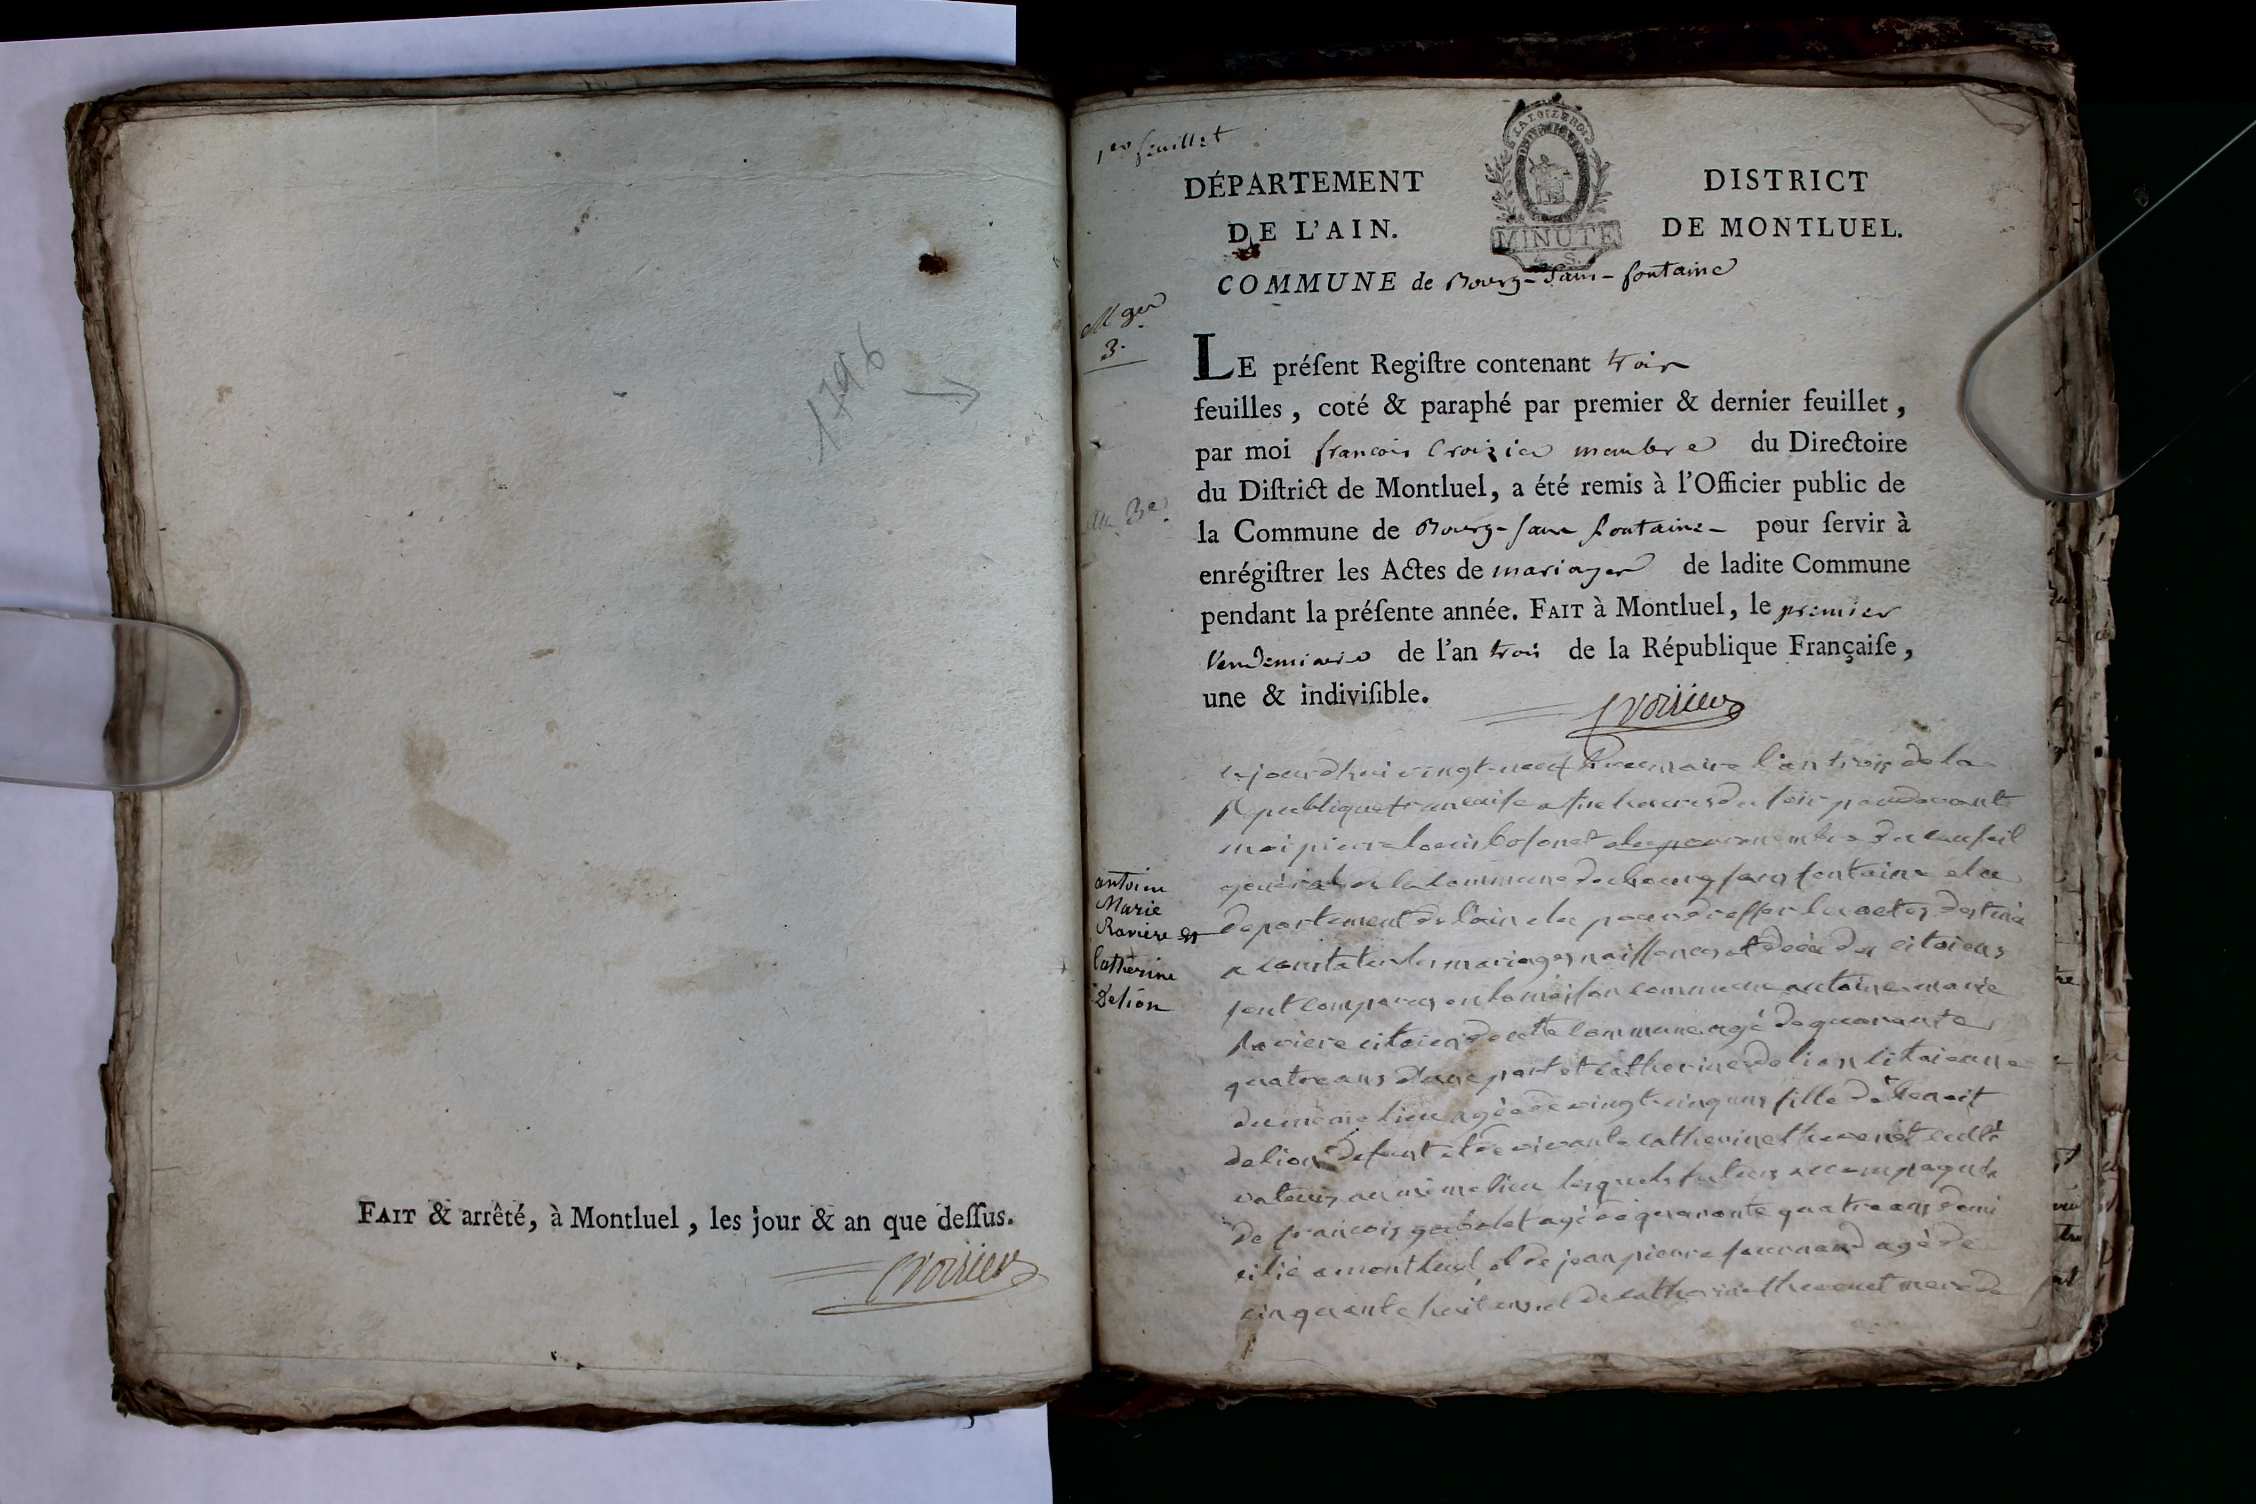 1796
FAIT & arrêté, à Montluel, les jour & an que deſſus.
Croizier
1er feuillet
DÉPARTEMENT
DE L'AIN.
LA LOI LE ROI
MINUTE
4. S.
DISTRICT
DE MONTLUEL.
COMMUNE de Bourg-Sans-fontaine
M ges
3.
LE préſent Regiſtre contenant trois
feuilles, coté & paraphé par premier & dernier feuillet,
par moi francois Croizier membre du Directoire
du Diſtrict de Montluel, a été remis à l'Officier public de
la Commune de Bourg-sans fontaine pour ſervir à
enrégiſtrer les Actes de mariages de ladite Commune
pendant la préſente année. FAIT à Montluel, le premier
Vendemiaire de l'an trois de la République Françaiſe,
une & indiviſible.
Croizier
antoine
Marie
Raviere et
Catherine
Delion
jourdhui vingt-neuf l'an trois de la
Republique francaise a heures du soir pardevant
moi pierre louis membre du conseil
général de la commune de bourg sans fontaine
departement de l'ain elu pour dresser les actes destiné
a constater les mariages naissances et décès des citoiens
sont comparus en la maison commune antoine marie
Raviere citoien de cette commune agé de quarante
quatre ans d'une part et catherine delion citoienne
du même lieu agée de vingt-cinq ans fille de benoit
delion defunt et de vivante catherine thevenet culti
vateurs au même lieu lesquels futurs accompagnés
de francois agé de quarante quatre ans domi
cilié a montluel et de jean pierre agé de
cinquante huit ans et de catherine thevenet mere de